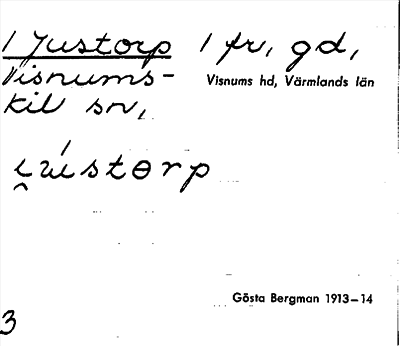 1 Justorp 1 fr, gd,
Visnums-
Visnums hd, Värmlands län
kil sn,
Gösta Bergman 1913–14
3